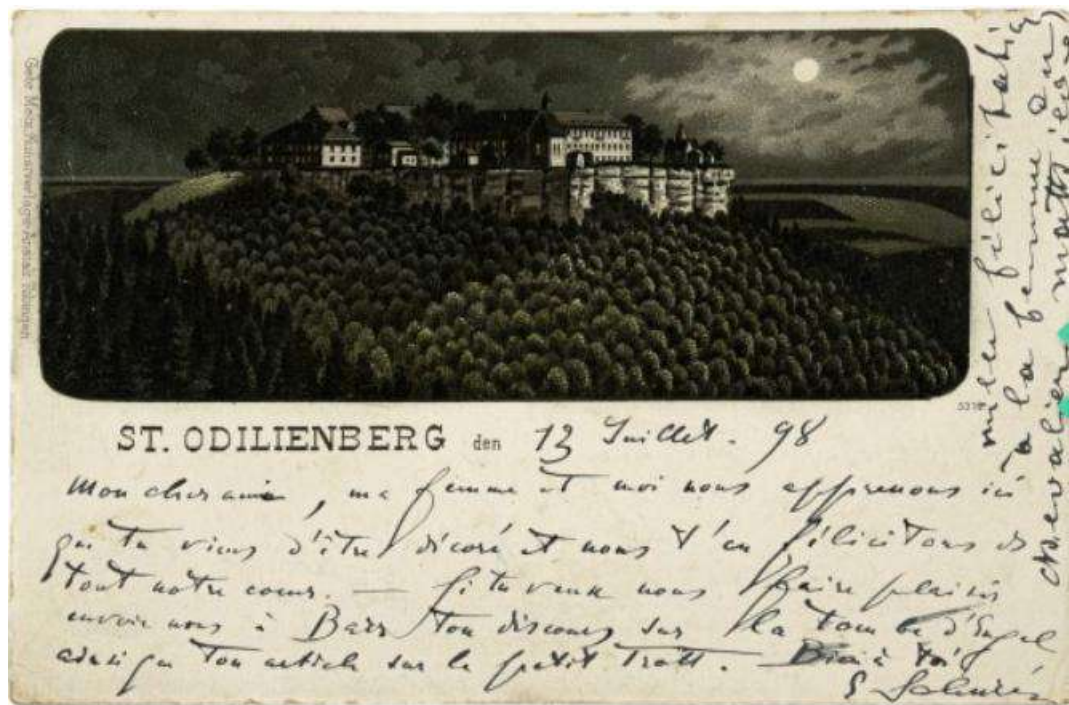 ST. ODILIENBERG den 13 Juillet. 98
Mon cher ami, ma femme et moi nous apprenons ici
que tu viens d'être décoré et nous t'en félicitons de
tout notre coeur. — Si tu veux nous faire plaisir
envoie nous à Barr ton discours sur la tombe d'Engel
ainsi que ton article sur le petit Trott. — Bien à toi
E Schuré
mille félicitations
à la femme du
chevalier
5318